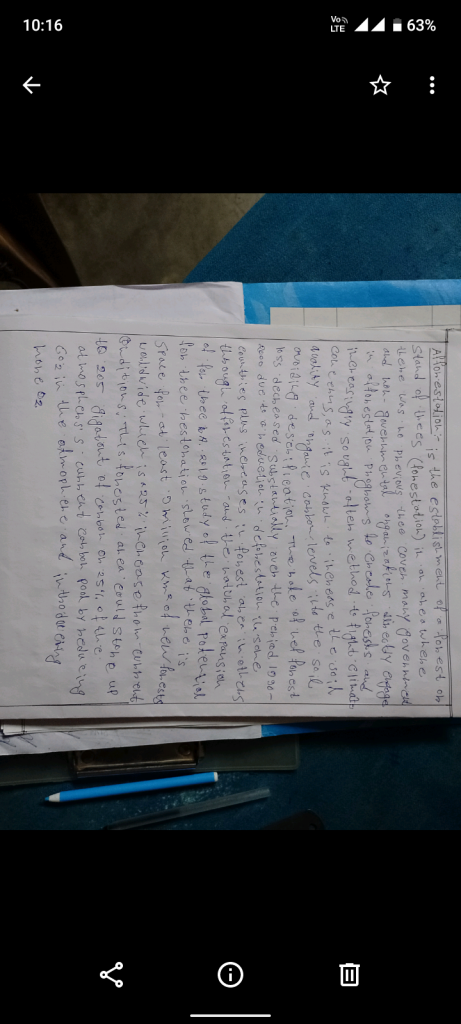 10:16
Vo
LTE
63%
Afforestation:- is the establishment of a forest or
stand of trees (forestation) in an area where
there was no previous tree cover many government
and non governmental organizations directly engage
in afforestation programs to create forests and
increasingly sought-after method to fight climate
concerns, as it is known to increase the soil
quality and organic carbon levels into the soil
avoiding desertification. The rate of net forest
loss decreased substantially over the period 1990-
due to a reduction in deforestation in some
countries plus increases in forest area in others
through afforestation and the natural expansion
of for tree A 2019 study of the global potential
for tree restoration showed that there is
Space for at least 9 million km2 of new forests
worldwide which is a 25% increase from current
Conditions. This forested area could store up
to 205 gigatont of carbon or 25% of the
atmosphere's current carbon pool by reducing
Co2 in the atmosphere and introducing
more O2